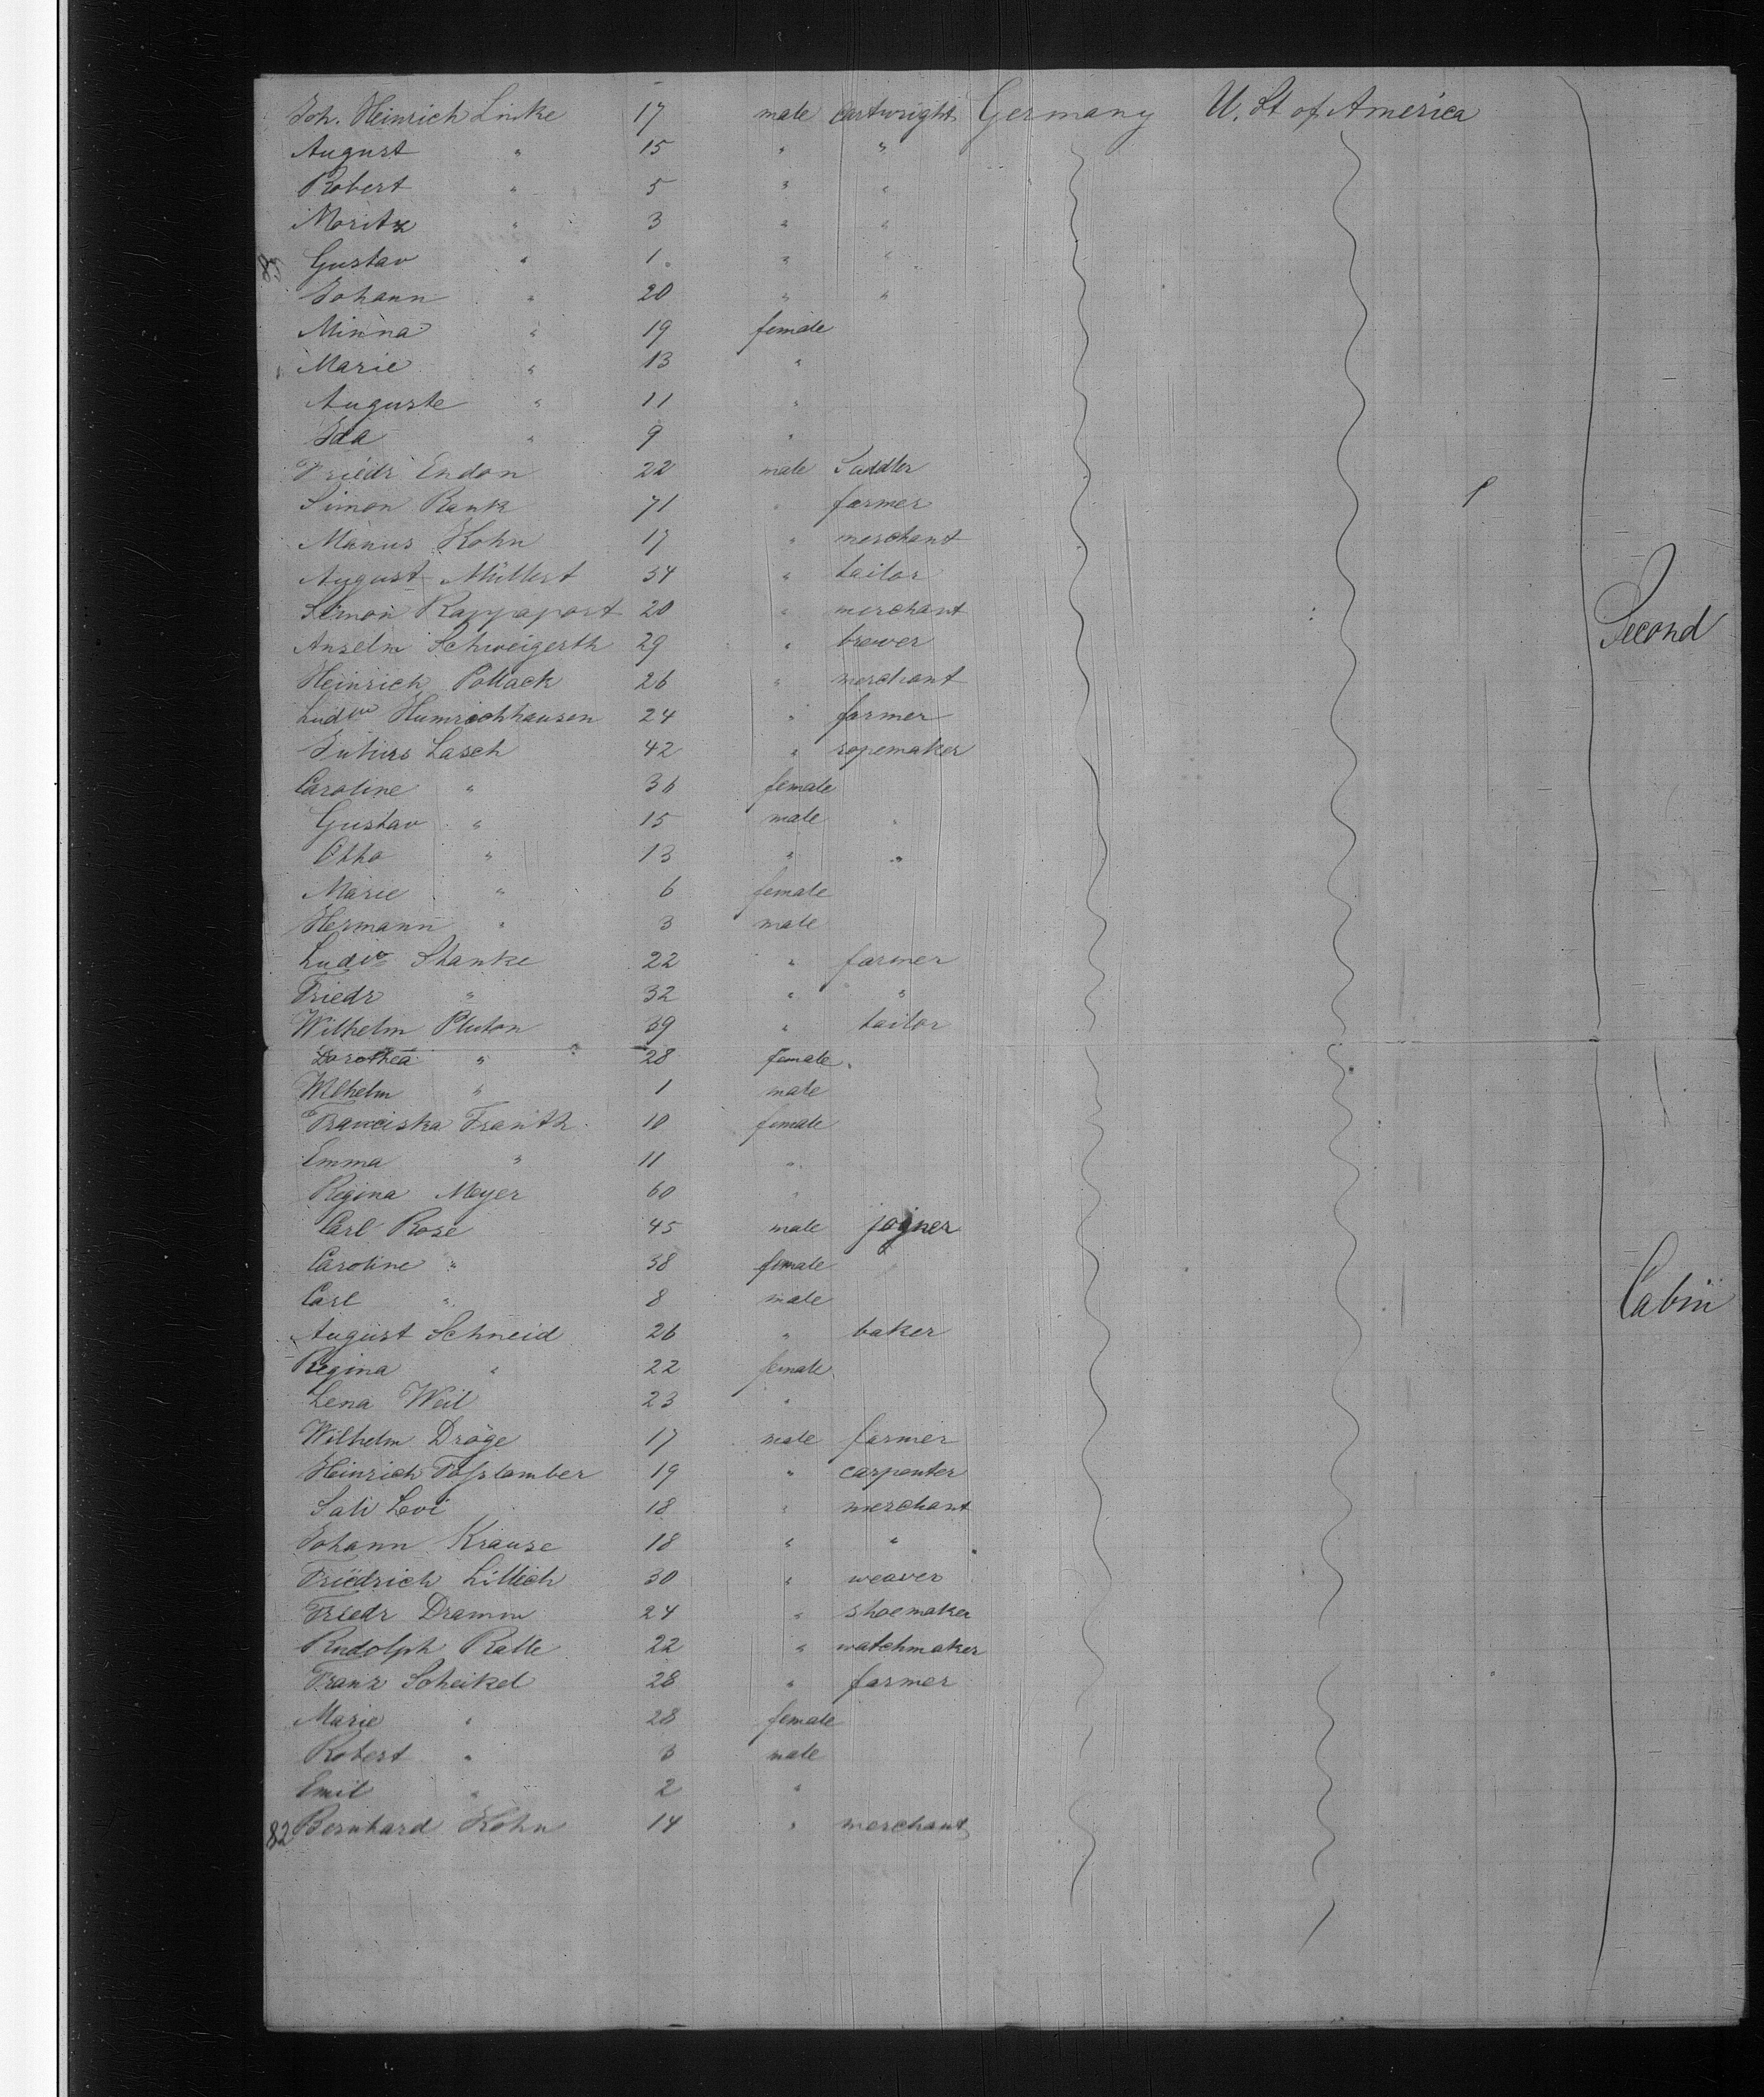 Joh. Heinrich Linke 17 male cartwright Germany U. St of America
August " 15 " "
Robert " 5 " "
Moritz " 3 " "
Gustav " 1 " "
Johann " 20 " "
Minna " 19 female
Marie " 13 "
Auguste " 11 "
Ida " 9 "
Friedr Endon 22 male Saddler
Simon Rank 71 " farmer
Manus Kohn 17 " merchant
August Müllert 34 " tailor
Simon Rappaport 20 " merchant
Anselm Schweigerth 29 " brewer
Second
Heinrich Pollack 26 " merchant
Ludw Humrichhausen 24 " farmer
Julius Lasch 42 " ropemaker
Caroline " 36 female
Gustav " 15 male "
Otto " 13 " "
Marie " 6 female
Hermann " 3 male
Ludw Stanke 22 " farmer
Friedr " 32 " "
Wilhelm Pluton 39 " tailor
Dorothea " 28 female
Wilhelm " 1 male
Franciska 10 female
Emma " 11 "
Regina Meyer 60 "
Carl Rose 45 male joyner
Caroline " 38 female
Carl " 8 male
Cabin
August Schneid 26 " baker
Regina " 22 female
Lena Weil 23 "
Wilhelm Dröge 17 male farmer
Heinrich 19 " carpenter
Sali Levi 18 " merchant
Johann Krause 18 " "
Friedrich Littich 30 " weaver
Friedr Dramm 24 " shoemaker
Rudolph Ralle 22 " watchmaker
Franz Scheikel 28 " farmer
Marie " 28 female
Robert " 3 male
Emil " 2 "
82 Bernhard Kohn 14 " merchant